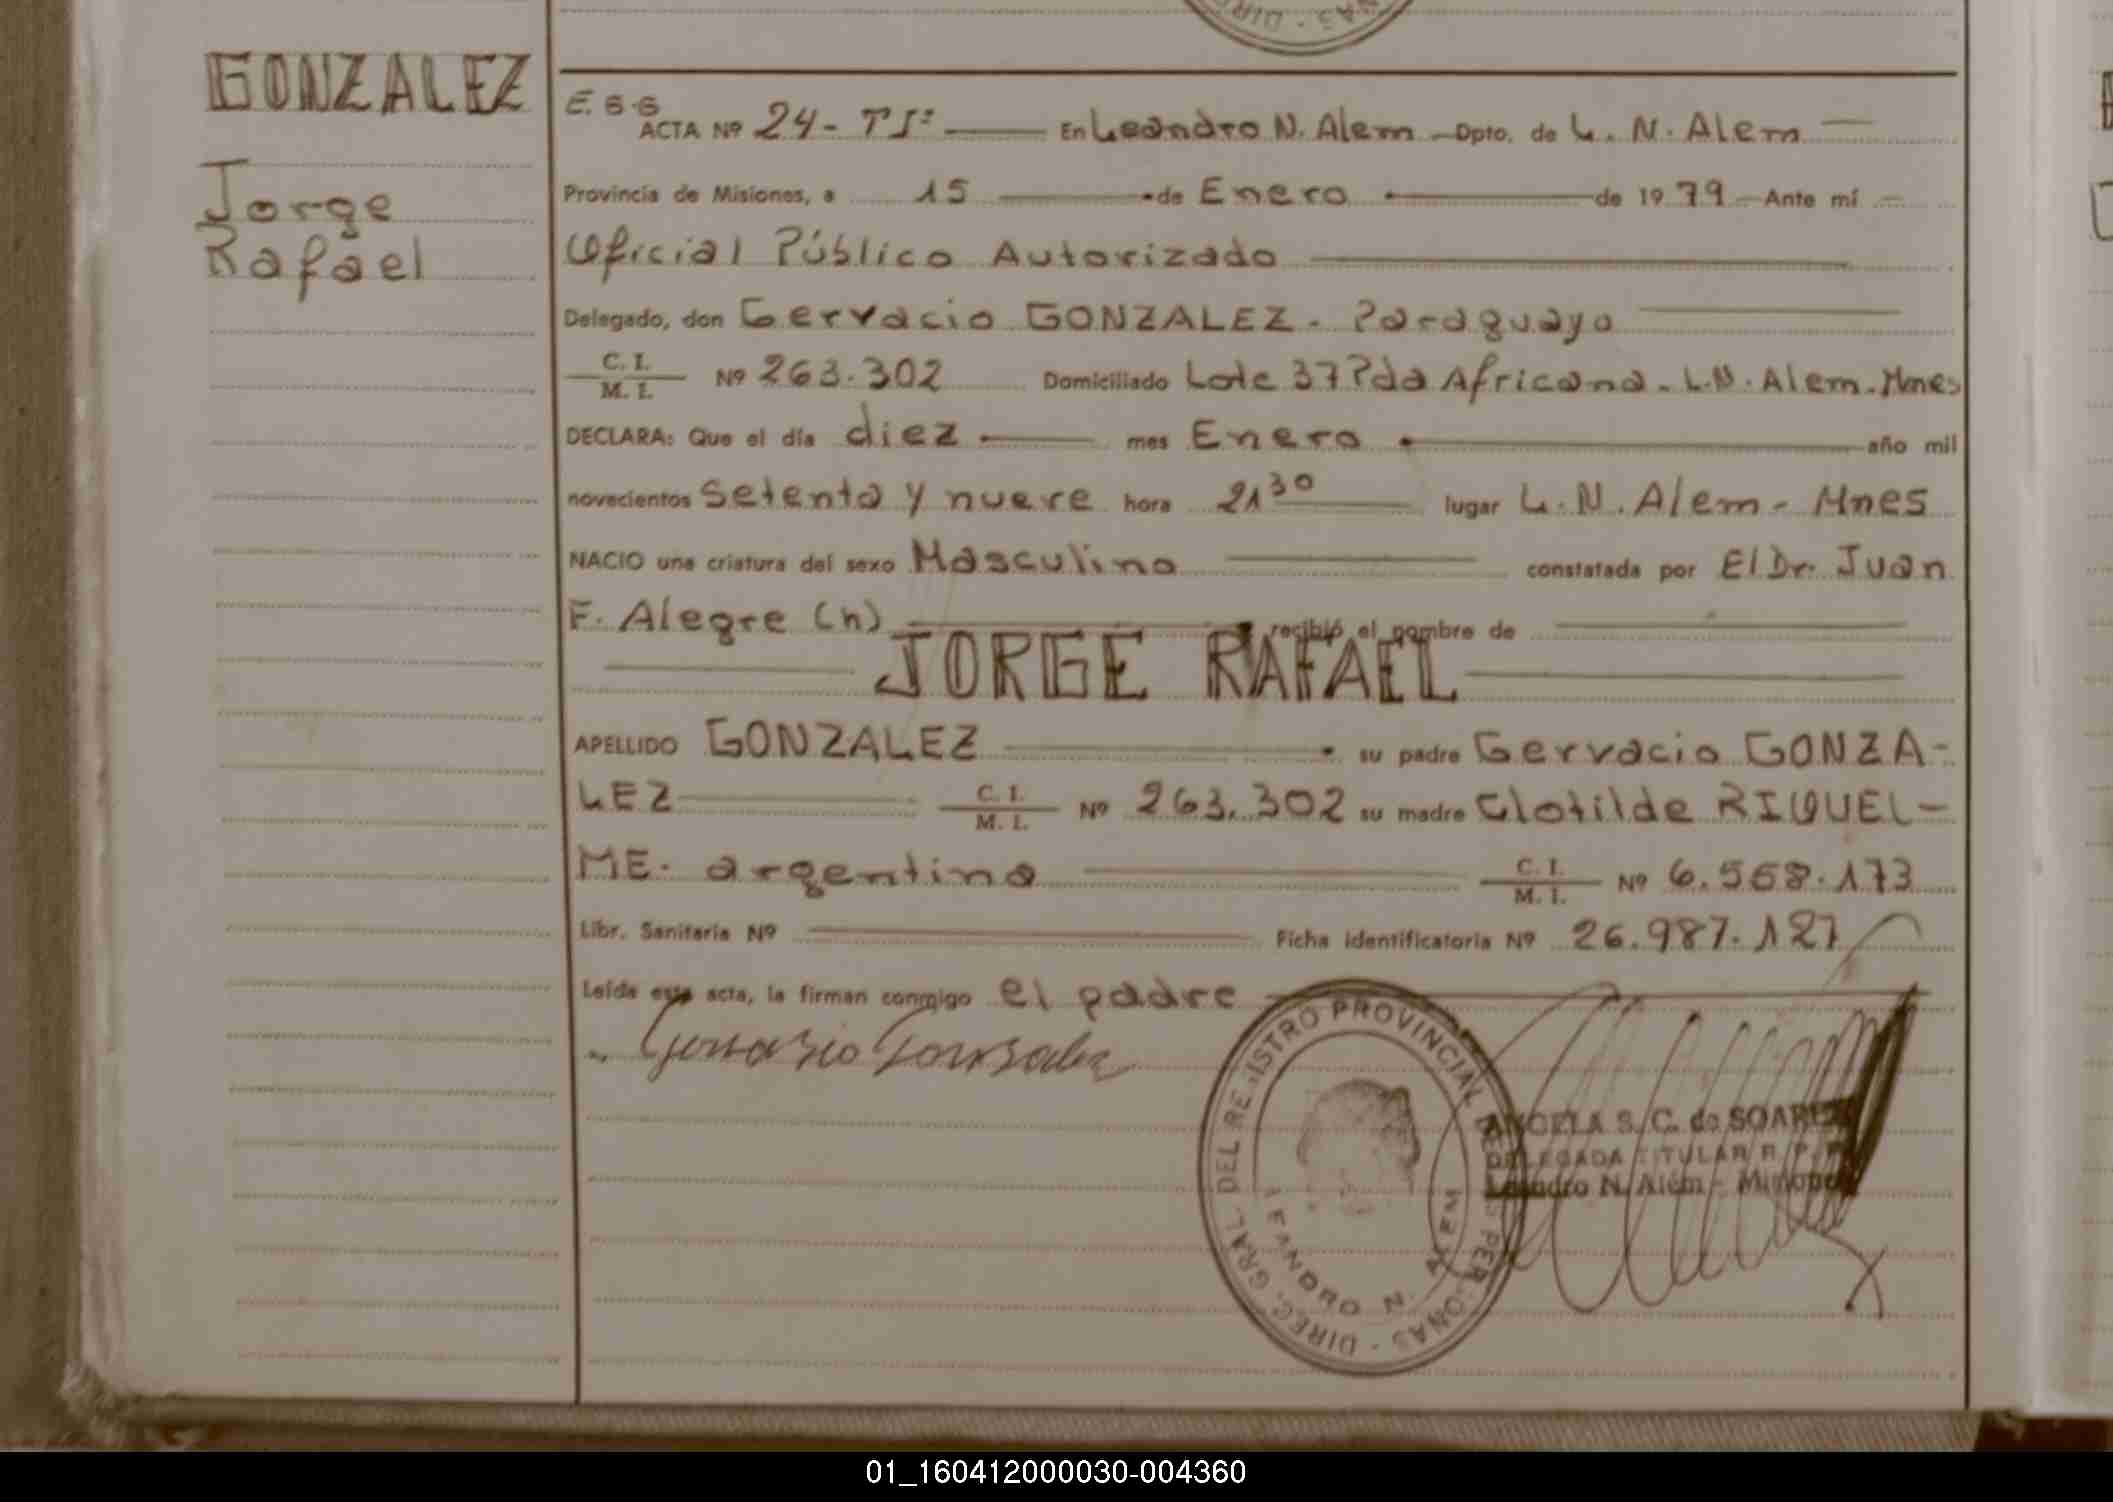 NAS - DIRE
GONZALEZ
Jorge
Rafael
E. S-S
ACTA Nº 24 - TIº En Leandro N. Alem Dpto. de L. N. Alem
Provincia de Misiones, a 15 de Enero de 1979 Ante mí
Oficial Público Autorizado
Delegado, don Gervacio GONZALEZ. Paraguayo
C. I.
M. I. Nº 263.302 Domiciliado Lote 37 Pda Africana - L.N. Alem - Mnes
DECLARA: Que el día diez mes Enero año mil
novecientos Setenta y nueve hora 21 30 lugar L. N. Alem - Mnes
NACIO una criatura del sexo Masculino constatada por El Dr. Juan
F. Alegre (h) recibió el nombre de
JORGE RAFAEL
APELLIDO GONZALEZ su padre Gervacio GONZA-
LEZ C. I. M. I. Nº 263.302 su madre Clotilde RIQUEL-
ME. argentina C. I. M. I. Nº 6.568.173
Libr. Sanitaria Nº Ficha identificatoria Nº 26.987.127
Leída esta acta, la firman conmigo el padre
Gervasio Gonzalez
DIREC. GRAL. DEL REGISTRO PROVINCIAL DE LAS PERSONAS -
LEANDRO N. ALEM
ANGELA S. C. de SOAREZ
DELEGADA TITULAR R. P. P.
Leandro N. Alem - Misiones
01_160412000030-004360